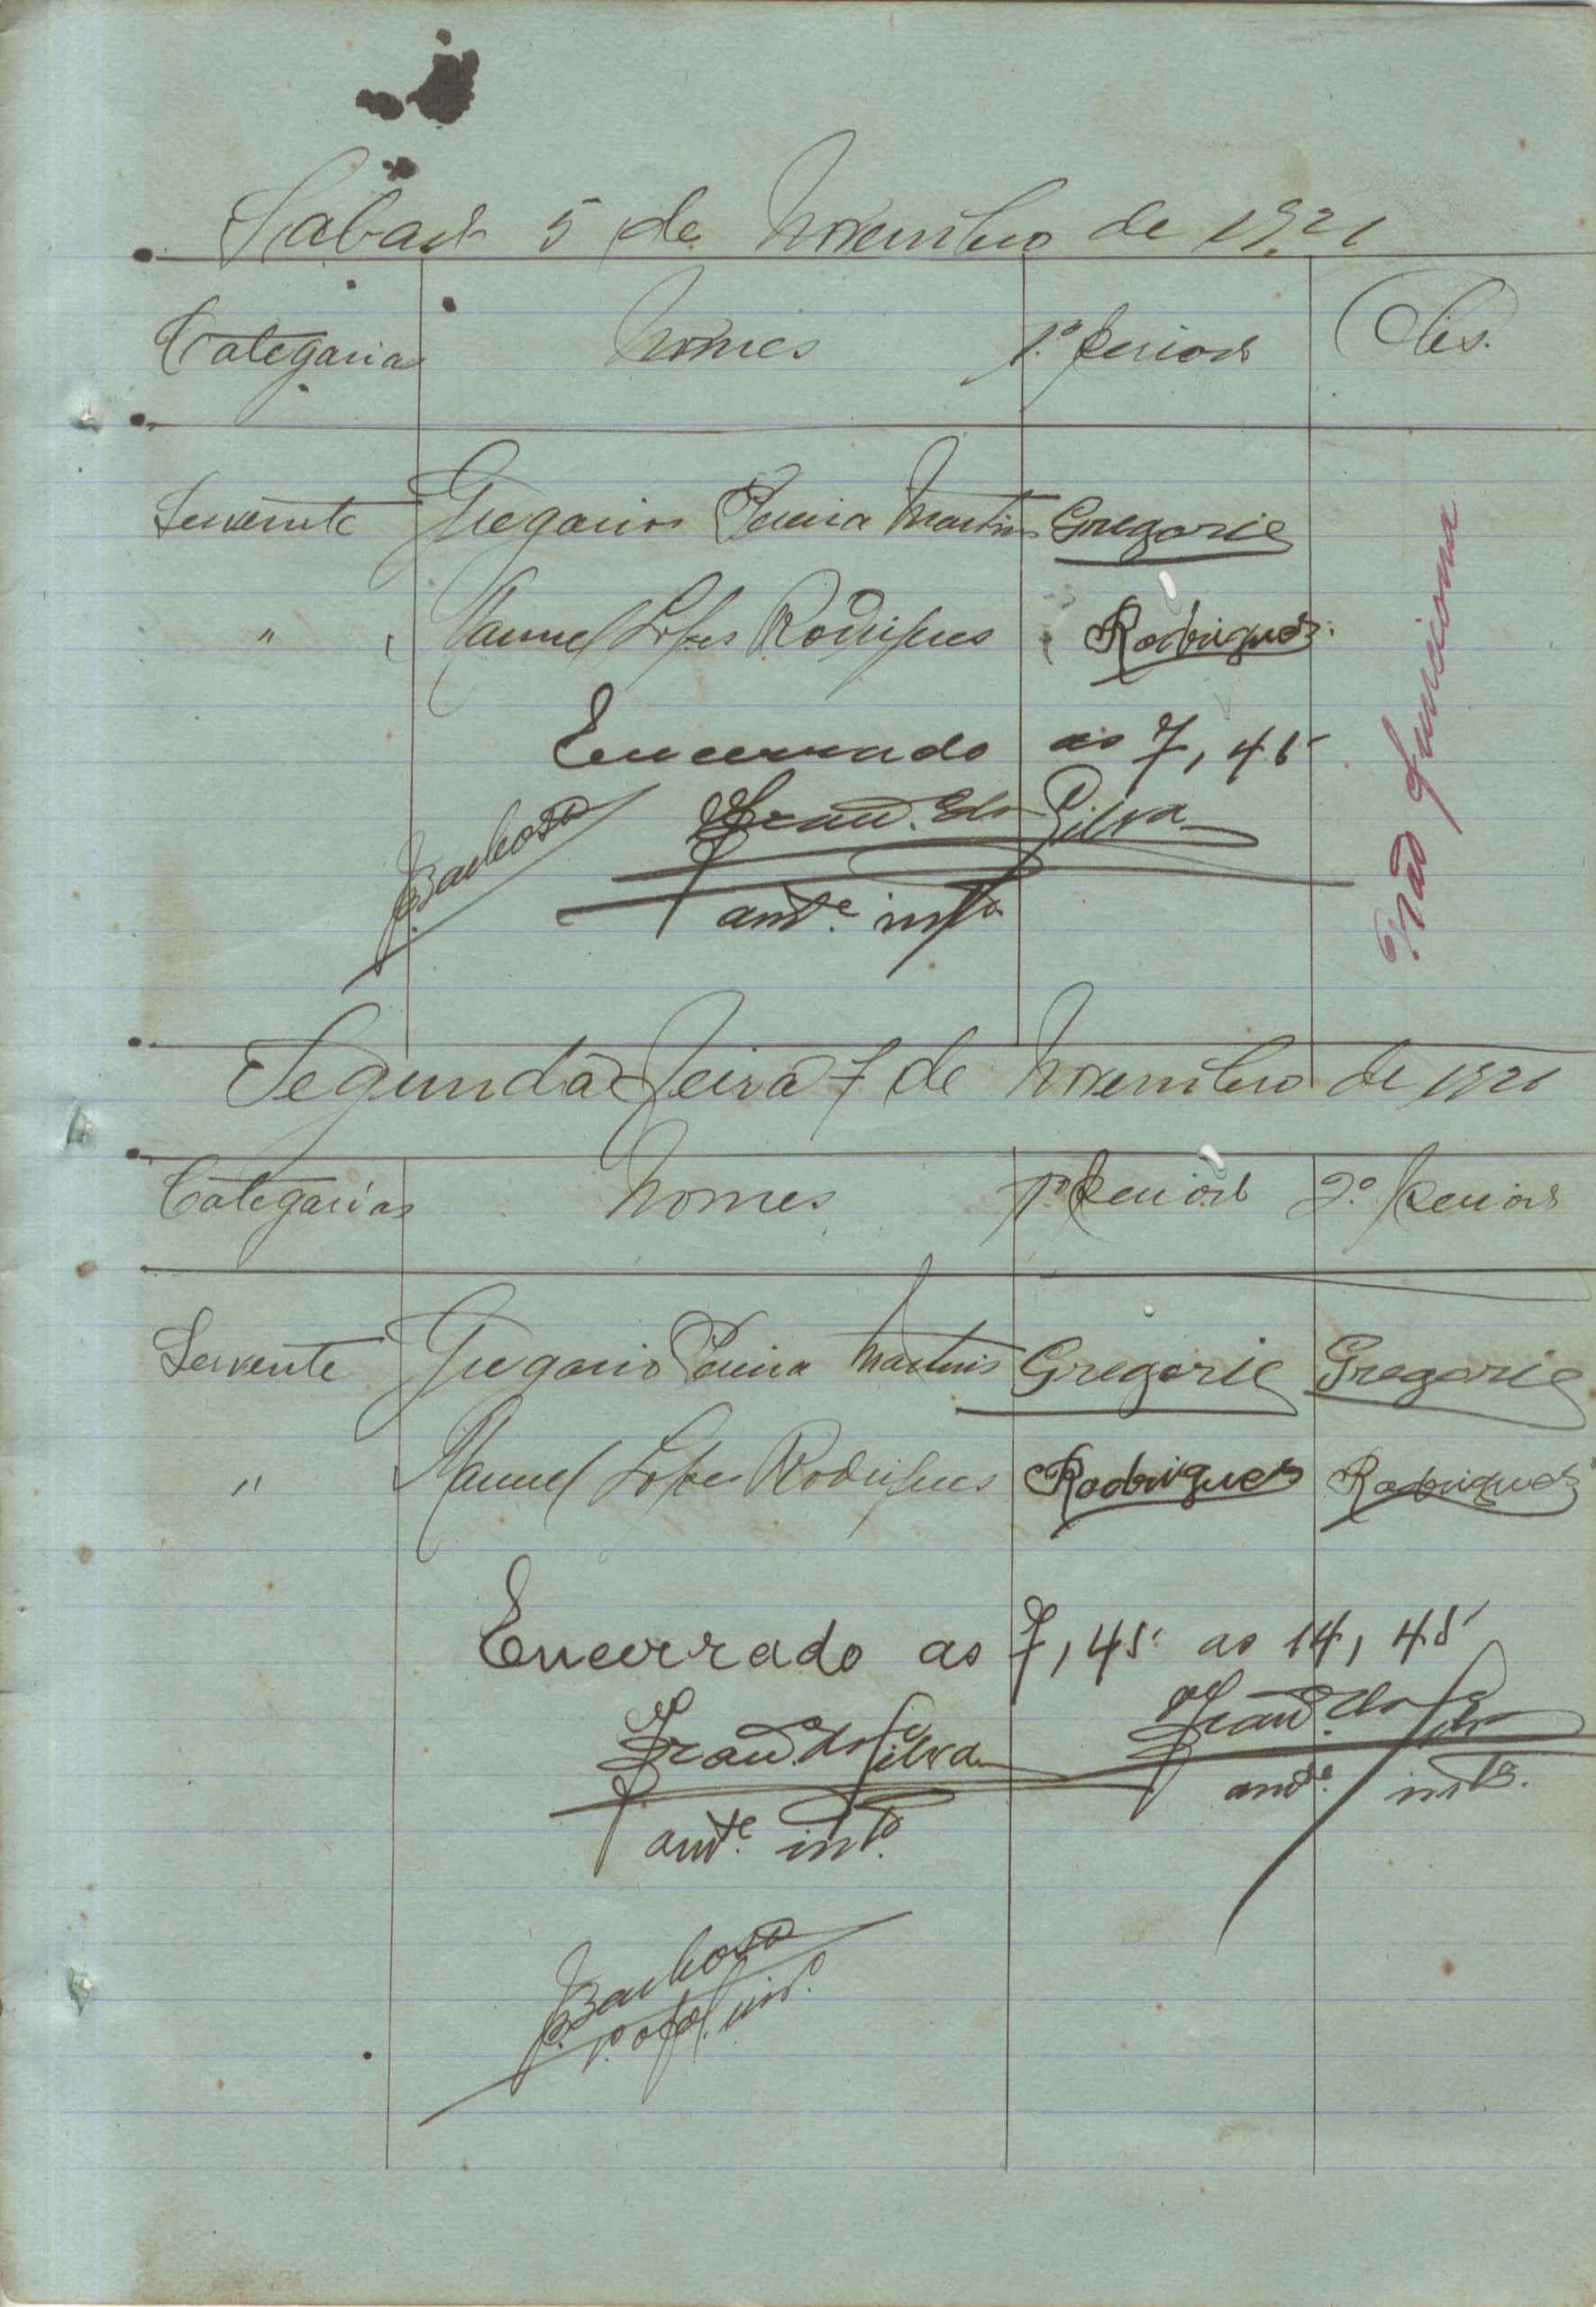 Sabado 5 de Novembro de 1921
Categorias Nomes 1.º periodo Obs.
Servente Gregorio Pereira Martins Gregorio
" Manuel Lopes Rodrigues Rodrigues
Não funciona
Encerrado as 7,45
Franc.º da Silva
Barbosa
amte. intº
Segunda Feira 7 de Novembro de 1921
Categorias Nomes 1º periodo 2.º periodo
Servente Gregorio Pereira Martins Gregorio Gregorio
" Manuel Lopes Rodrigues Rodrigues Rodrigues
Encerrado as 7,45 as 14,45
Franc.º da Silva Franc.º da Silva
amte. intº. amte. intº.
Barbosa
1.º ofal. int.º